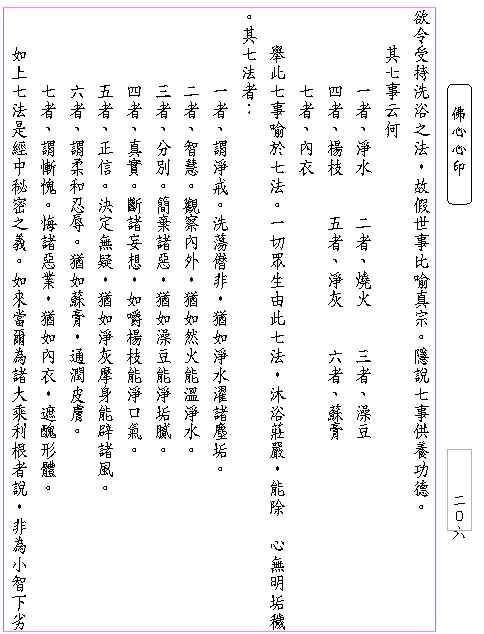 佛心心印
二０六
欲令受持洗浴之法，故假世事比喻真宗。隱說七事供養功德。
其七事云何
一者、淨水　二者、燒火　三者、澡豆
四者、楊枝　五者、淨灰　六者、蘇膏
七者、內衣
舉此七事喻於七法。一切眾生由此七法，沐浴莊嚴，能除　心無明垢穢
。其七法者：
一者、謂淨戒。洗蕩僭非，猶如淨水濯諸塵垢。
二者、智慧。觀察內外，猶如然火能溫淨水。
三者、分別。簡棄諸惡，猶如澡豆能淨垢膩。
四者、真實。斷諸妄想，如嚼楊枝能淨口氣。
五者、正信。決定無疑，猶如淨灰摩身能辟諸風。
六者、謂柔和忍辱。猶如蘇膏，通潤皮膚。
七者、謂慚愧。悔諸惡業，猶如內衣，遮醜形體。
如上七法是經中秘密之義。如來當爾為諸大乘利根者說，非為小智下劣